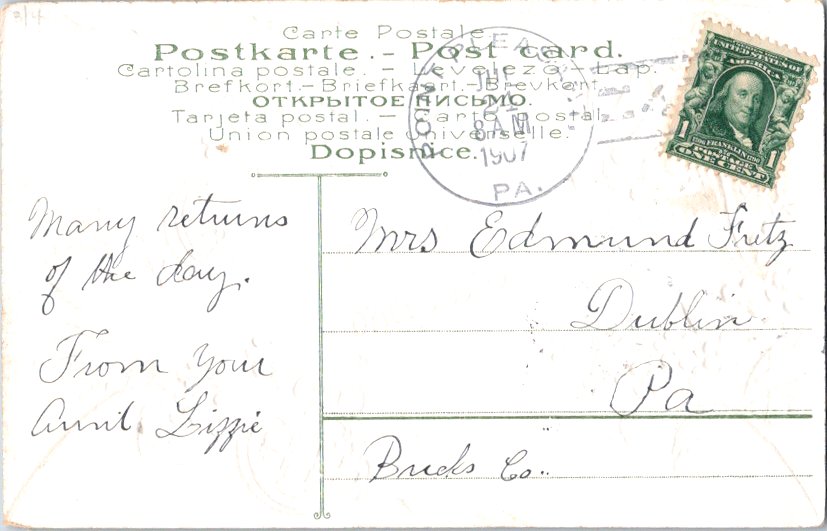 3/4
Carte Postale.
Postkarte.– Post card.
Cartolina postale. – Levelező-Lap.
Brefkort.–Briefkaart.–Brevkort.
ОТКРЫТОЕ ПИСЬМО.
Tarjeta postal. – Carto Postal.
Union postale universelle.
Dopisnice.
8 AM
1907
PA.
UNITED STATES OF
AMERICA
1 FRANKLIN 1
POSTAGE
ONE CENT
Many returns
of the day.
From your
Aunt Lizzie
Mrs Edmund Fretz
Dublin
Pa
Bucks Co.